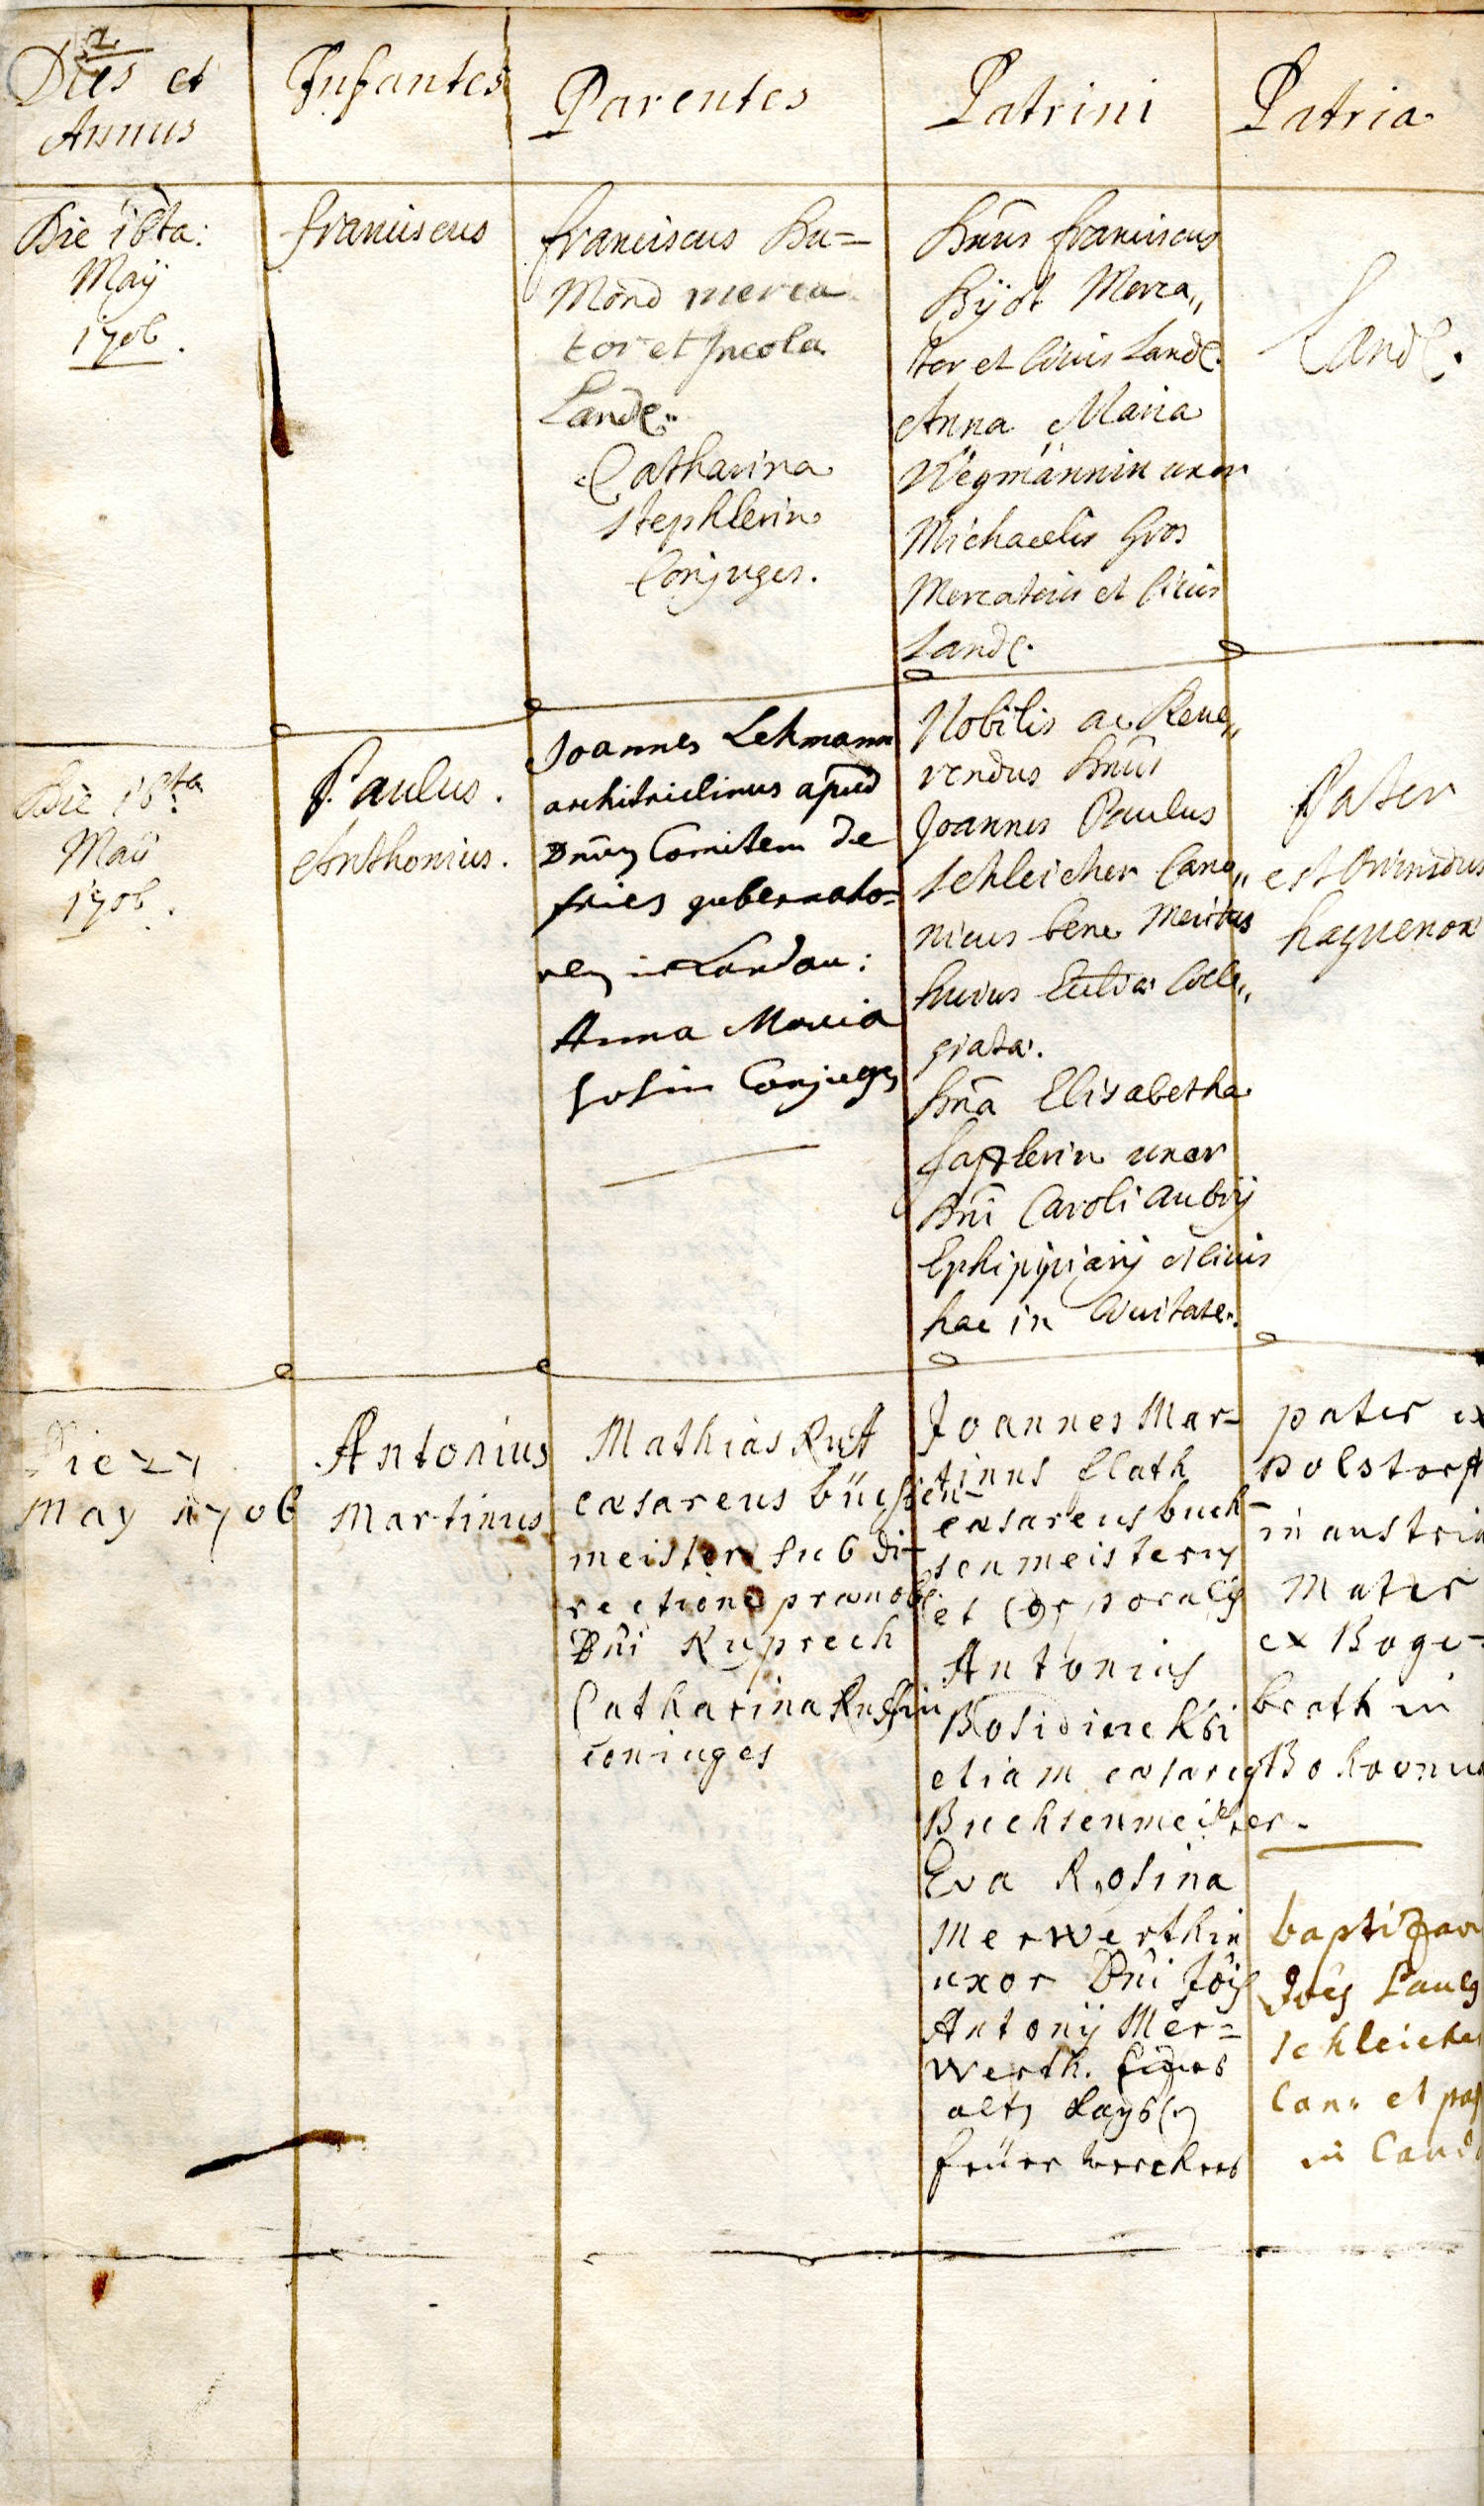 2
Dies et
Annus
Infantes
Parentes
Patrini
Patria
Die 16ta:
Maÿ
1706.
franciscus
franciscus Hu=
Mond merca
tor et Incola
Land:
Catharina
stephlerin
Conjuges.
Dnus franciscus
Bÿot Merca„
tor et Civis Land:
Anna Maria
Wegmännin uxor
Michaelis Gros
Mercatoris et Civis
Land:
Land:
Die 16ta
Maÿ
1706.
Paulus.
Anthonius.
Joannes Lehmann
architriclinus apud
Dnum Comitem de
fries gubernato=
rem in Landau:
Anna Maria
Conjuges
Nobilis ac Reve„
rendus Dnus
Joannes Paulus
schleicher Cano„
nicus bene Meritus
huius Eccliae Colle„
giatae.
Dna Elisabetha
uxor
Dni Caroli Aubrÿ
Ephippiarÿ et Civis
hac in Civitate.
Pater
est Oriundus
hagenoa
Die 27
May 1706
Antonius
Martinus
Mathias Rust
caesareus büchsen-
meister sub di-
rectione praenob:
Dni Ruprech
Catharina
coniuges
Joannes Mar-
tinus flath
caesareus buch-
senmeister
et Corporalis
Antonius
etiam caesareus
Buchsenmeister.
Eva Rosina
Merwerthin
uxor Dni Jois
Antonÿ Mer=
werth. Eines
alten Kays:
feüer werckers
pater ex
polstorf
in austria
Mater
ex Boge-
brath in
Bohoemia
baptizavi
Joes Paulus
schleicher
Can. et
in Land